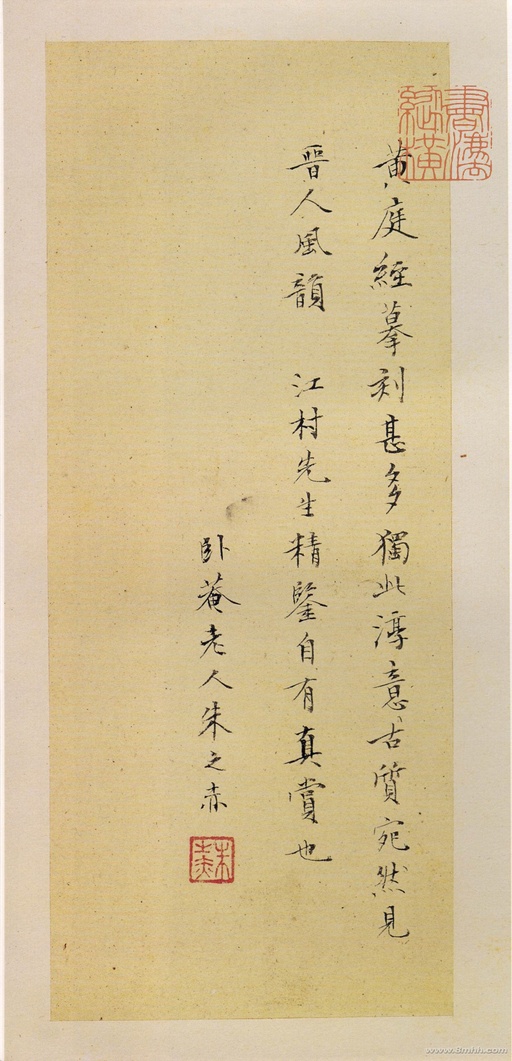 黄庭經摹刻甚多獨此淳意古質宛然見
晉人風韻　江村先生精鑒自有真賞也
卧菴老人朱之赤
朱之赤
www.8mhh.com